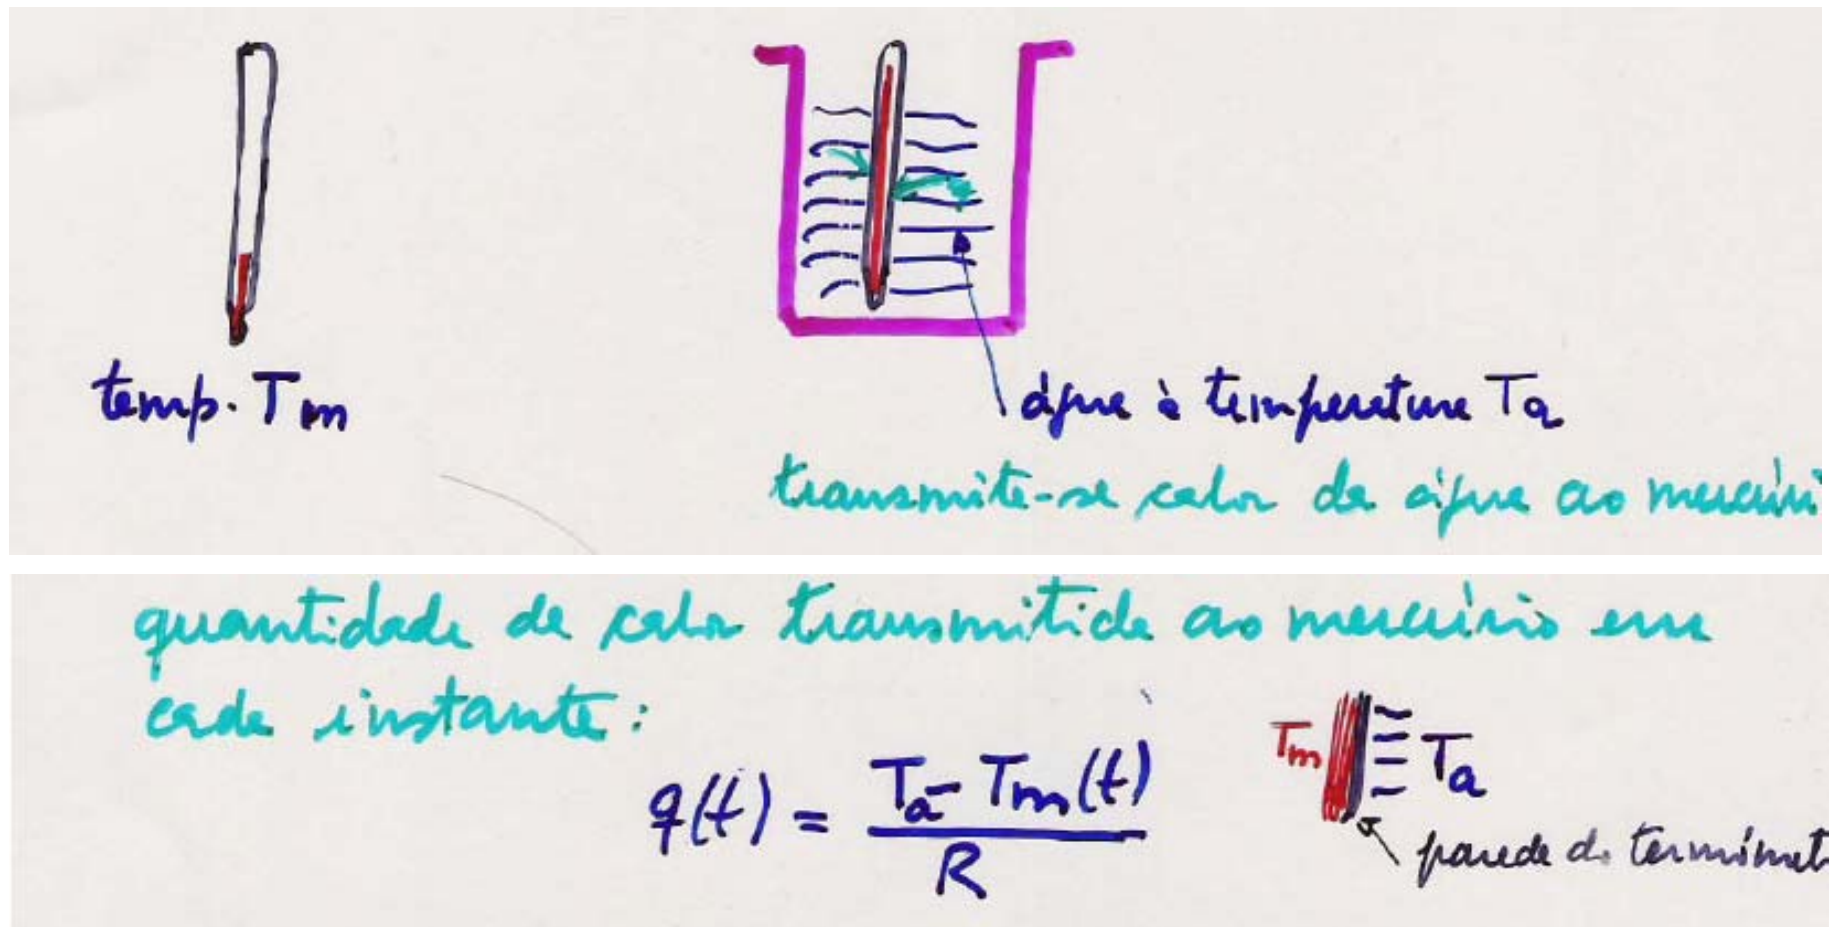 temp. Tm
água à temperatura Ta
transmite-se calor da água ao mercúri
quantidade de calor transmitida ao mercúrio em
cada instante:
q(t) = Ta - Tm(t) / R
Tm Ta
parede do termómet